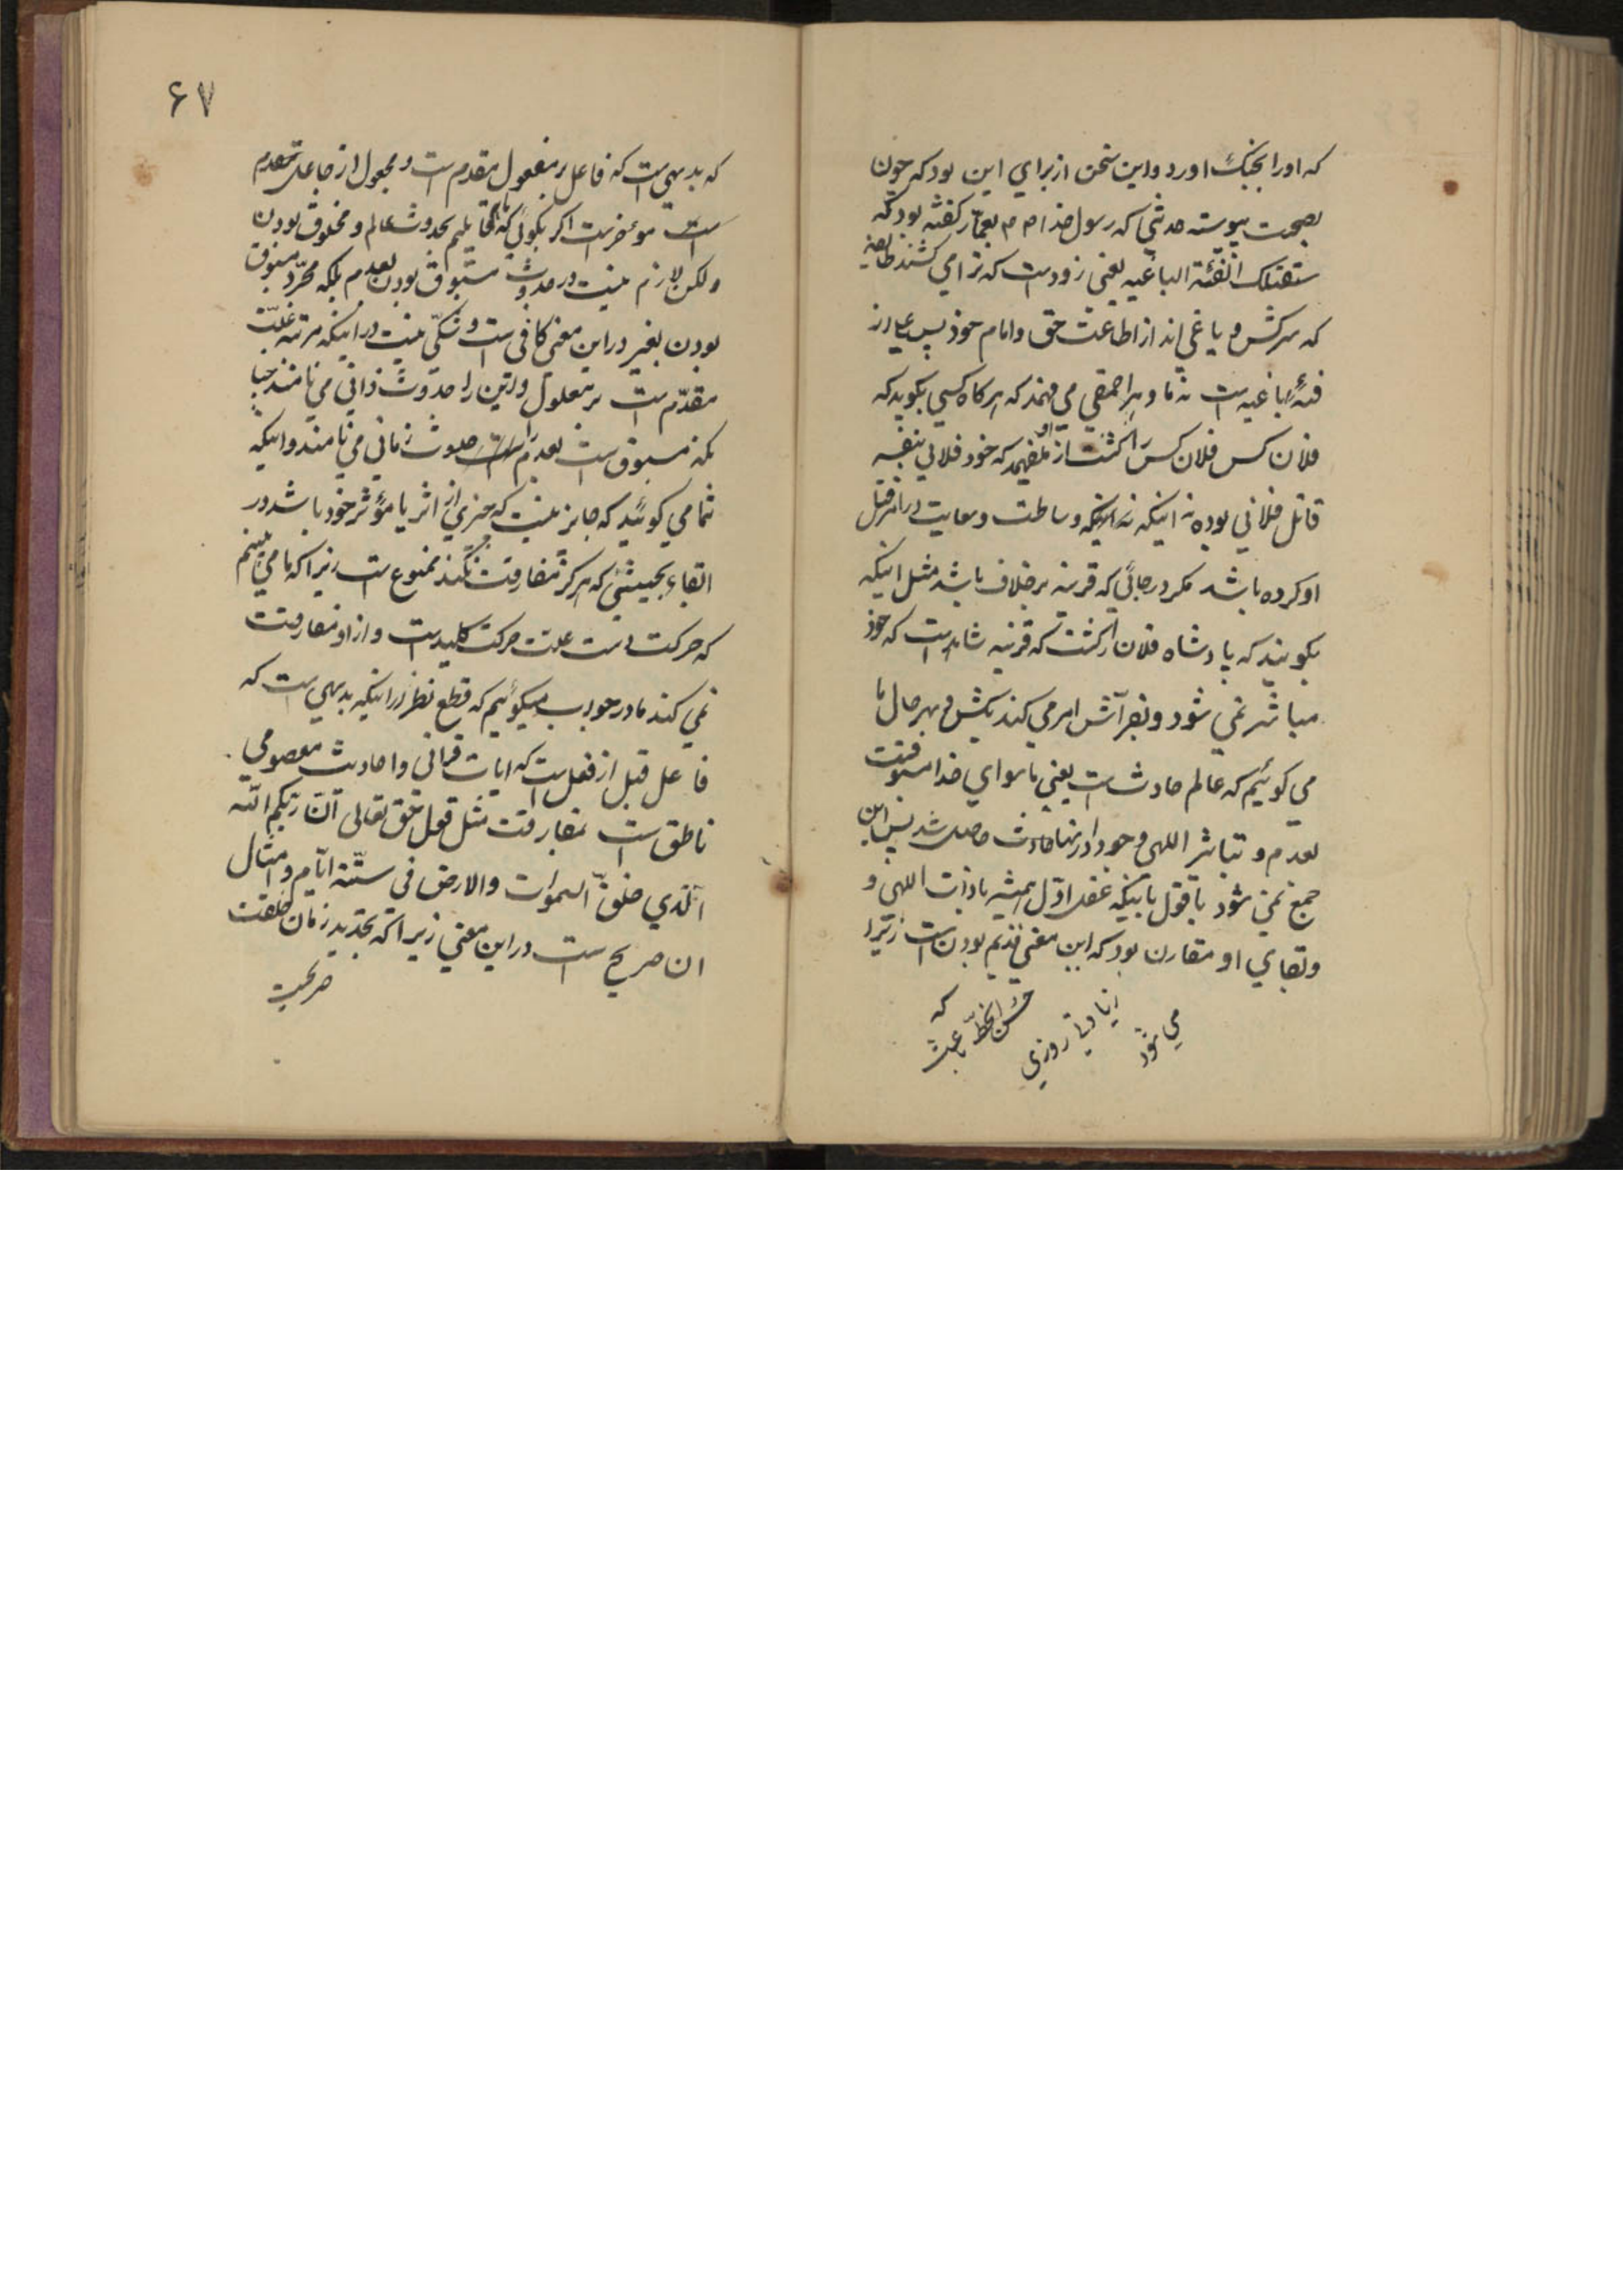 که اورا بجنک اورد و این سخن از برای این بود که چون
بصحت پیوسته حدیثی که رسول خدا ص م بعمّار کفته بود که
ستقتلک الفئة الباغیه یعنی زودست که ترا می کشند طایفه
که سرکش و یاغی اند از اطاعت حق و امام خود پس
فئهٔ باغیه است نه ما و هر احمقی می فهمد که هر کاه کسی بکوید که
فلان کس فلان کس را کشت از او نفهمد که خود فلانی بنفسه
قاتل فلانی بوده نه اینکه وساطت و سعایت در امر قتل
او کرده باشد مکر در جائی که قرینه بر خلاف باشد مثل اینکه
بکویند که پادشاه فلان را کشت که قرینه شاهد است که خود
مباشر نمی شود و بفرّاش امر می کند بکش و بهر حال ما
می کوئیم که عالم حادث است یعنی ماسوای خدا مسبوقست
بعدم و بتاثیر اللهی وجود او را حادث حاصل شد پس این
جمع نمی شود با قول باینکه عقل اوّل همیشه با ذات اللهی و
و بقای او مقارن بود که این معنی قدیم بودن است زیرا
که
حُسن الخطّ باعث
زیادتی روزی
می شود
۶۷
که بدیهی است که فاعل بر مفعول مقدم است و مجعول از جاعل مقدم
است مؤخر است اکر بکوئی که ما قایلیم بحدوث عالم و مخلوق بودن
ولکن لازم نیست در حدوث مسبوق بودن بعدم بلکه مجرّد مسبوق
بودن بغیر در این معنی کافی است و شکّی نیست در اینکه مرتبه علّت
مقدّم است بر معلول و این را حدوث ذاتی می نامند چنا
نکه مسبوق است بعدم را حدوث زمانی می نامند و اینکه
شما می کوئید که جایز نیست که چیزی از اثر یا مؤثر خود باشد در
اتقاء بحیثیتی که هرکز مفارقت نکند ممنوع است زیرا که ما می بینیم
که حرکت دست علت حرکت کلید است و از او مفارقت
نمی کند ما در جواب میکوئیم که قطع نظر از اینکه بدیهی است که
فاعل قبل از فعل است که ایات قرانی و احادیث معصومی
ناطق است بمفارقت مثل قول حق تعالی انّ ربّکم اللّه
الّذی خلق السموات والارض فی ستّة ایّام و امثال
ان صریح است در این معنی زیرا که تحدید زمان خلقت
صریحست